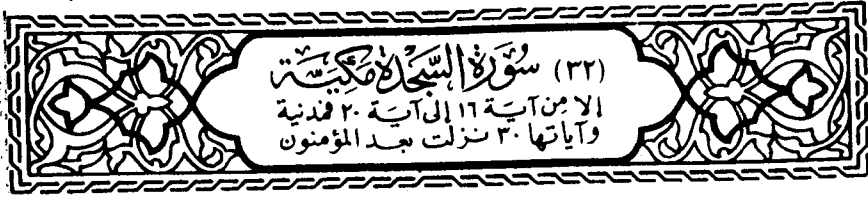 (٣٢) سُوْرَةُ السَّجْدَةِ مَكِّيَّتْ
إلا مِن آيَة ١٦ إلى آيَة ٢٠ فمدنية
وآياتها ٣٠ نزلت بعد المؤمنون